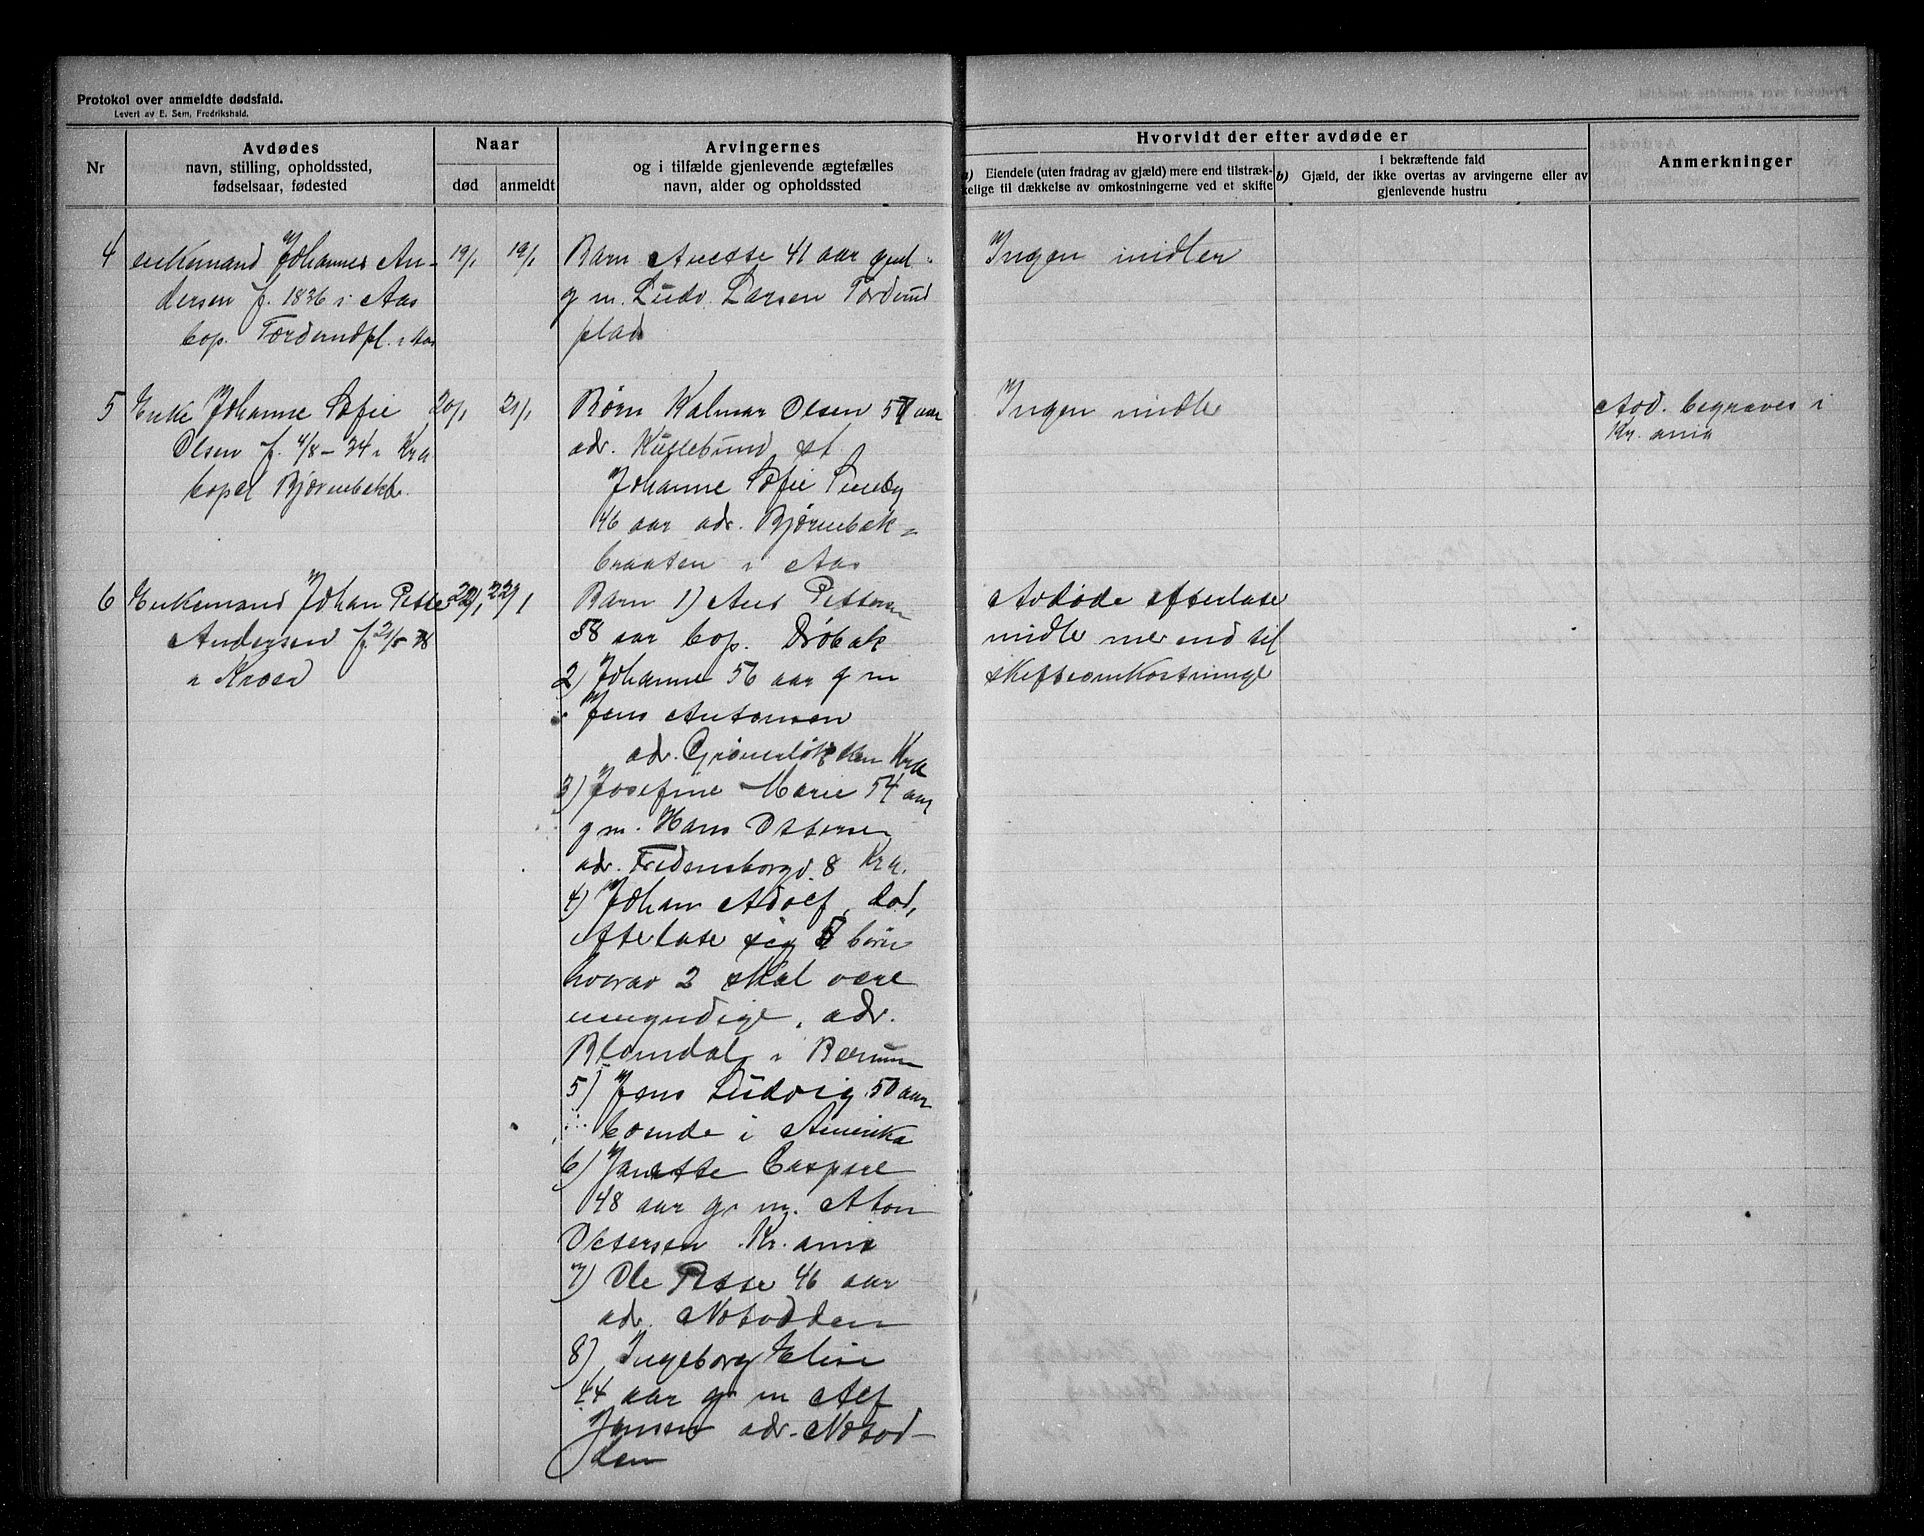 Protokol over anmeldte dødsfald.
Levert av E. Sem, Fredrikshald.
Nr
Avdødes
navn, stilling, opholdssted,
fødselsaar, fødested
Naar
død
anmeldt
Arvingernes
og i tilfælde gjenlevende ægtefælles
navn, alder og opholdssted
Hvorvidt der efter avdøde er
a) Eiendele (uten fradrag av gjæld) mere end tilstræk-
kelige til dækkelse av omkostningerne ved et skifte
i bekræftende fald
b) Gjæld, der ikke overtas av arvingerne eller av
gjenlevende hustru
Anmerkninger
4
enkemand Johannes An-
dersen f. 1836 i Aas
bop. i Aas
19/1
19/1
Barn Anette 41 aar
g m. Ludv. Larsen
plads
Ingen midler
5
Enke Johanne Sofie
Olsen f. 4/8-34 i Kra
bopel Bjørnebekk
20/1
21/1
Børn Kalmar Olsen 57 aar
adr. st.
Johanne Sofie
46 aar adr. Bjørnebæk-
braaten i Aas
Ingen midle
Avd. begraves i
Kr.ania
6
Enkemand Johan Petter
Andersen f. 21/5
i Kroer
22/1
22/1
Barn 1) Petterse
58 aar bop. Drøbak
2) Johanne 56 aar g m
Jens Antonsen
adr. Grønerløkken Kra
3) Josefine Marie 54 aar
g m. Hans
adr. Fredensborgv. 8 Kra.
4) Johan Adolf, død,
efterlate sig børn
hvorav 2 skal være
umyndige, adr.
i Bærum
5) Jens Ludvig 50 aar
boende i Amerika
6) Janette
48 aar g m. Aton
Petersen Kr.ania
7) Ole Pette 46 aar
adr. Notodden
8) Ingeborg Elise
44 aar g m Alf
Jansen adr. Notod-
den
Avdøde efterlate
midle mer end til
skifteomkostninge